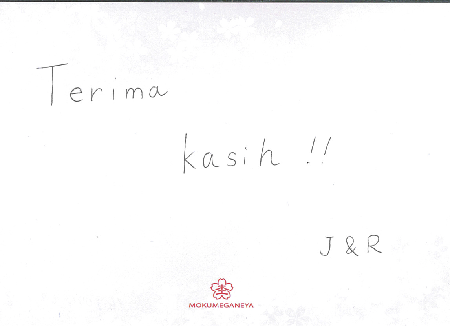 Terima
kasih !!
J & R
MOKUMEGANEYA